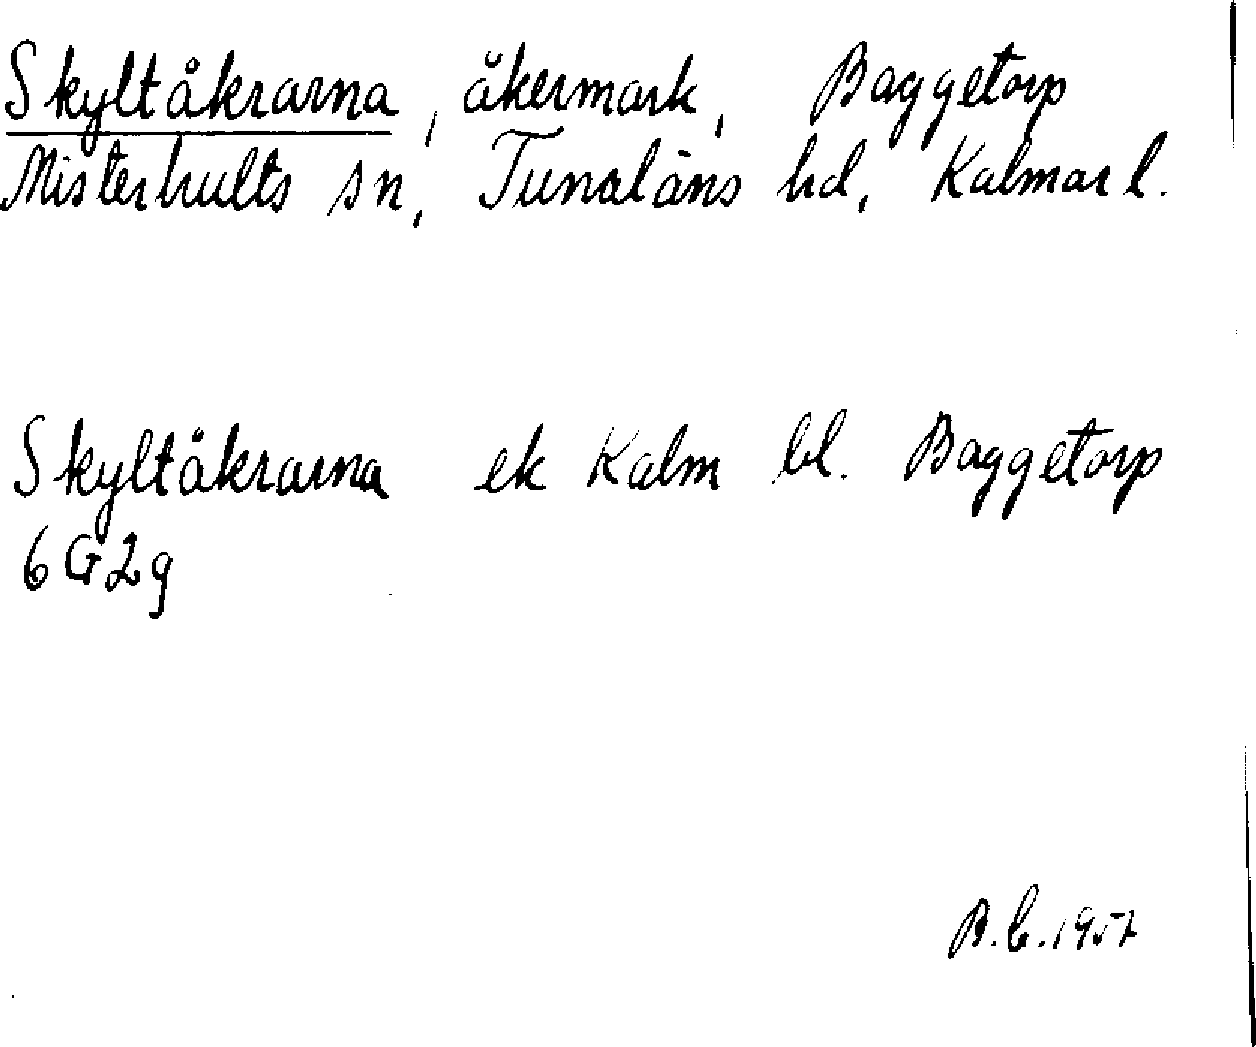 Skyltåkrarna, åkermark, Baggetorp
Misterhults sn, Tunaläns hd, Kalmar l.
Skyltåkrarna ek Kalm bl. Baggetorp
6G2g
B.C. 1957